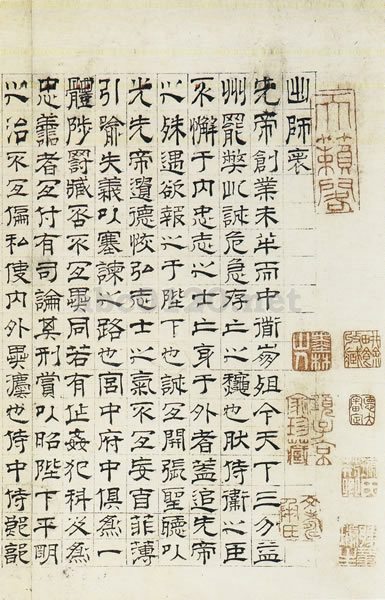 出師表
先帝創業未半而中道崩殂今天下三分益
州罷弊此誠危急存亡之龝也肰侍衛之臣
不懈于內忠志之士亡身于外者蓋追先帝
之殊遇欲報之于陛下也誠宜開張聖聽以
光先帝遺德恢弘志士之氣不宜妄自菲薄
引喻失義以塞諫之路也宮中府中俱為一
體陟罰臧否不宜異同若有作姦犯科及為
忠善者宜付有司論其刑賞以昭陛下平明
之治不宜偏私使內外異灋也侍中侍郎郭
天籟閣
項子京家珍藏